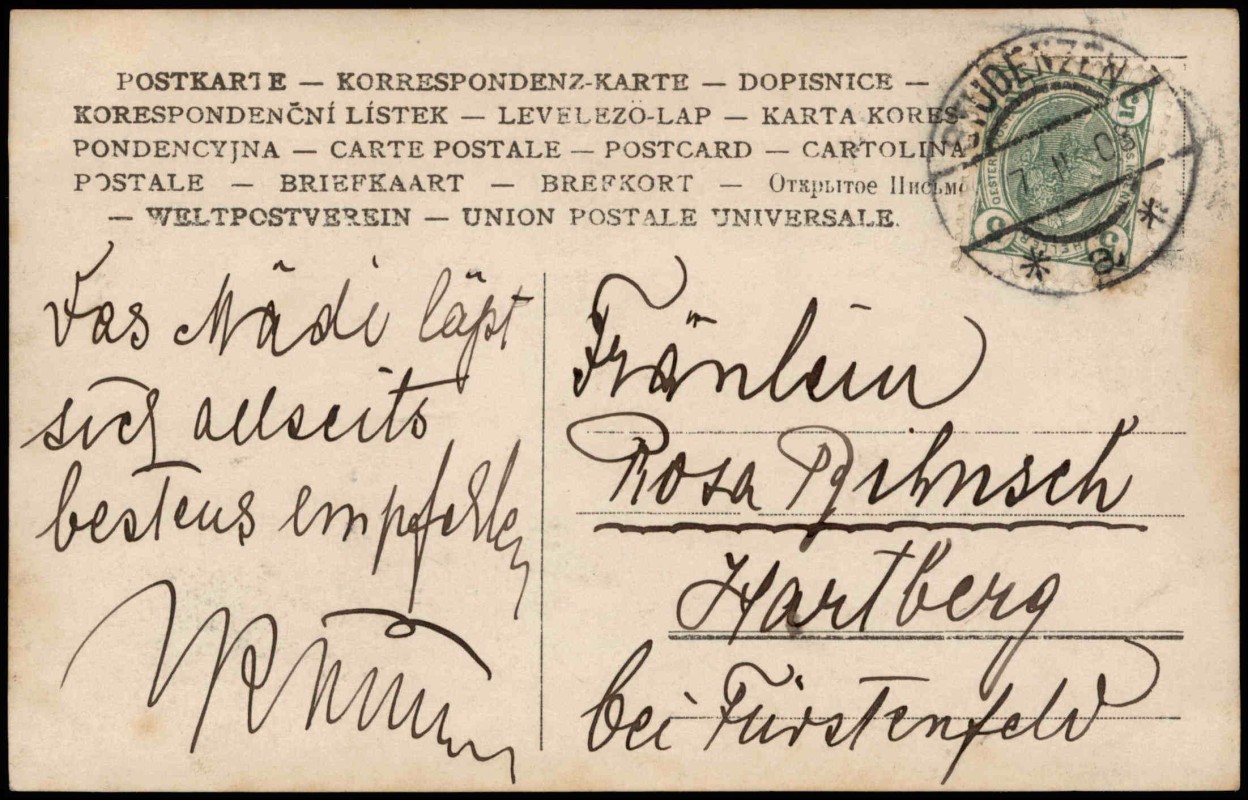 POSTKARTE — KORRESPONDENZ-KARTE — DOPISNICE —
KORESPONDENČNÍ LÍSTEK — LEVELEZÖ-LAP — KARTA KORES-
PONDENCYJNA — CARTE POSTALE — POSTCARD — CARTOLINA
POSTALE — BRIEFKAART — BREFKORT — Открытое Письмо
— WELTPOSTVEREIN — UNION POSTALE UNIVERSALE.
STUDENZEN
7 II 08
5 HELLER 5
Das Mädi läßt
sich allseits
bestens empfehlen
Fräulein
Rosa
Hartberg
bei Fürstenfeld